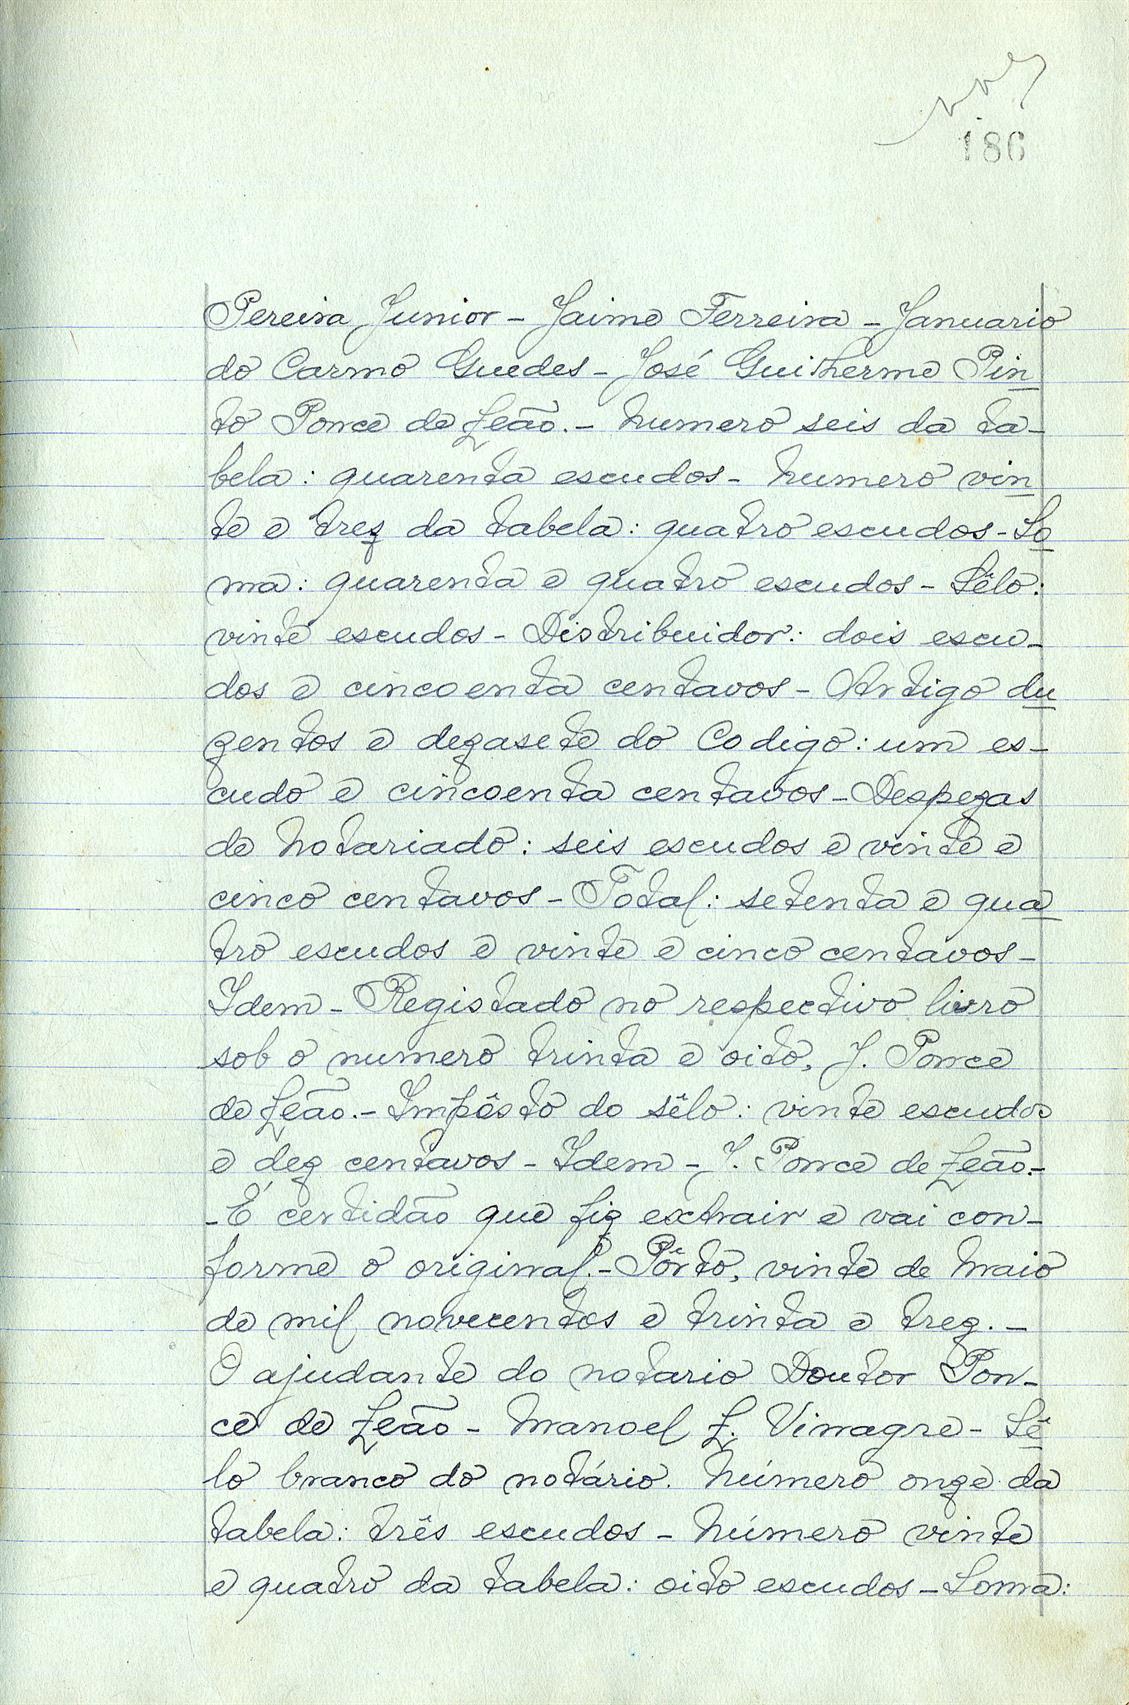 186
Pereira Junior - Jaime Ferreira - Januario
do Carmo Guedes - José Guilherme Pin
to Ponce de Leão. - Numero seis da ta-
bela: quarenta escudos - Numero vin
te e trez da tabela: quatro escudos - So
ma: quarenta e quatro escudos - Sêlo:
vinte escudos - Distribuidor: dois escu-
dos e cincoenta centavos - Artigo du
zentos e dezasete do Codigo: um es-
cudo e cincoenta centavos - Despezas
de Notariado: seis escudos e vinte e
cinco centavos - Total: setenta e qua
tro escudos e vinte e cinco centavos -
Idem - Registado no respectivo livro
sob o numero trinta e oito, J. Ponce
de Leão. - Impôsto do sêlo: vinte escudos
e dez centavos - Idem - J. Ponce de Leão. -
- É certidão que fiz extrair e vai con-
forme o original. - Pôrto, vinte de Maio
de mil novecentos e trinta e trez. -
O ajudante do notario Doutor Pon-
ce de Leão - Manoel L. Vinagre - Sê
lo branco do notário. Número onze da
tabela: três escudos - Número vinte
e quatro da tabela: oito escudos - Soma: